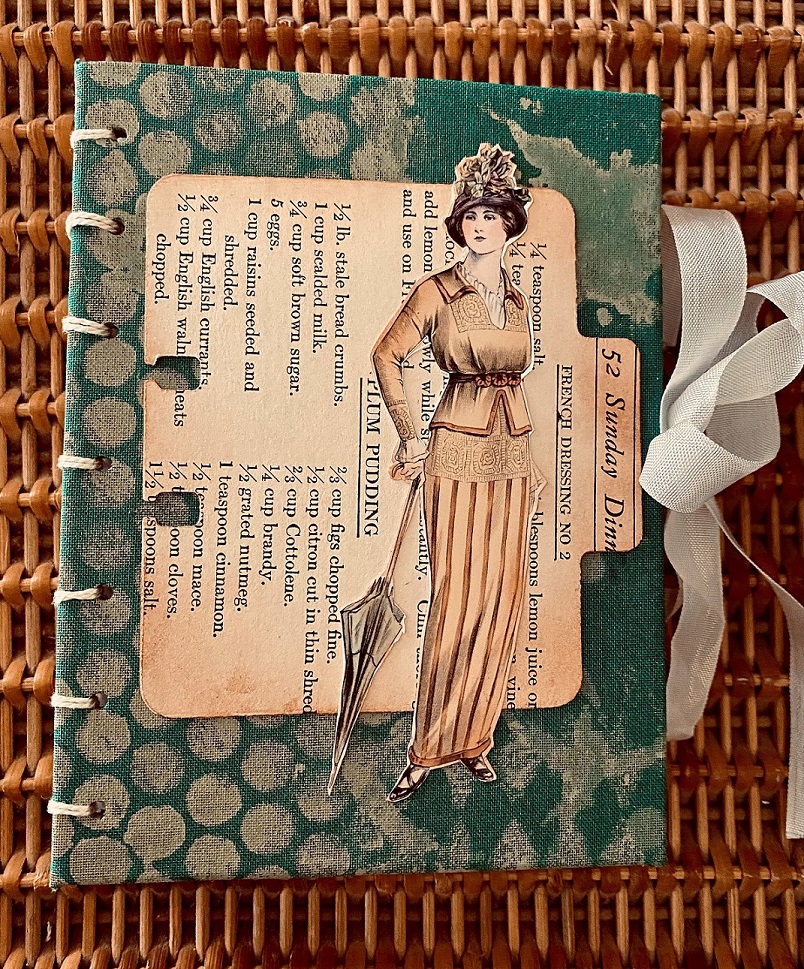 52 Sunday Dinn
FRENCH DRESSING NO 2
¼ teaspoon salt. blespoons lemon juice or
¼ tea
add lemon wly while antly.
and use on
PLUM PUDDING
½ lb. stale bread crumbs.
1 cup scalded milk.
¾ cup soft brown sugar.
5 eggs.
1 cup raisins seeded and
shredded.
¾ cup English currants.
½ cup English waln eats
chopped.
⅔ cup figs chopped fine.
½ cup citron cut in thin shred
⅔ cup Cottolene.
¼ cup brandy.
½ grated nutmeg.
1 teaspoon cinnamon.
½ teaspoon mace.
½ t oon cloves.
1½ spoons salt.